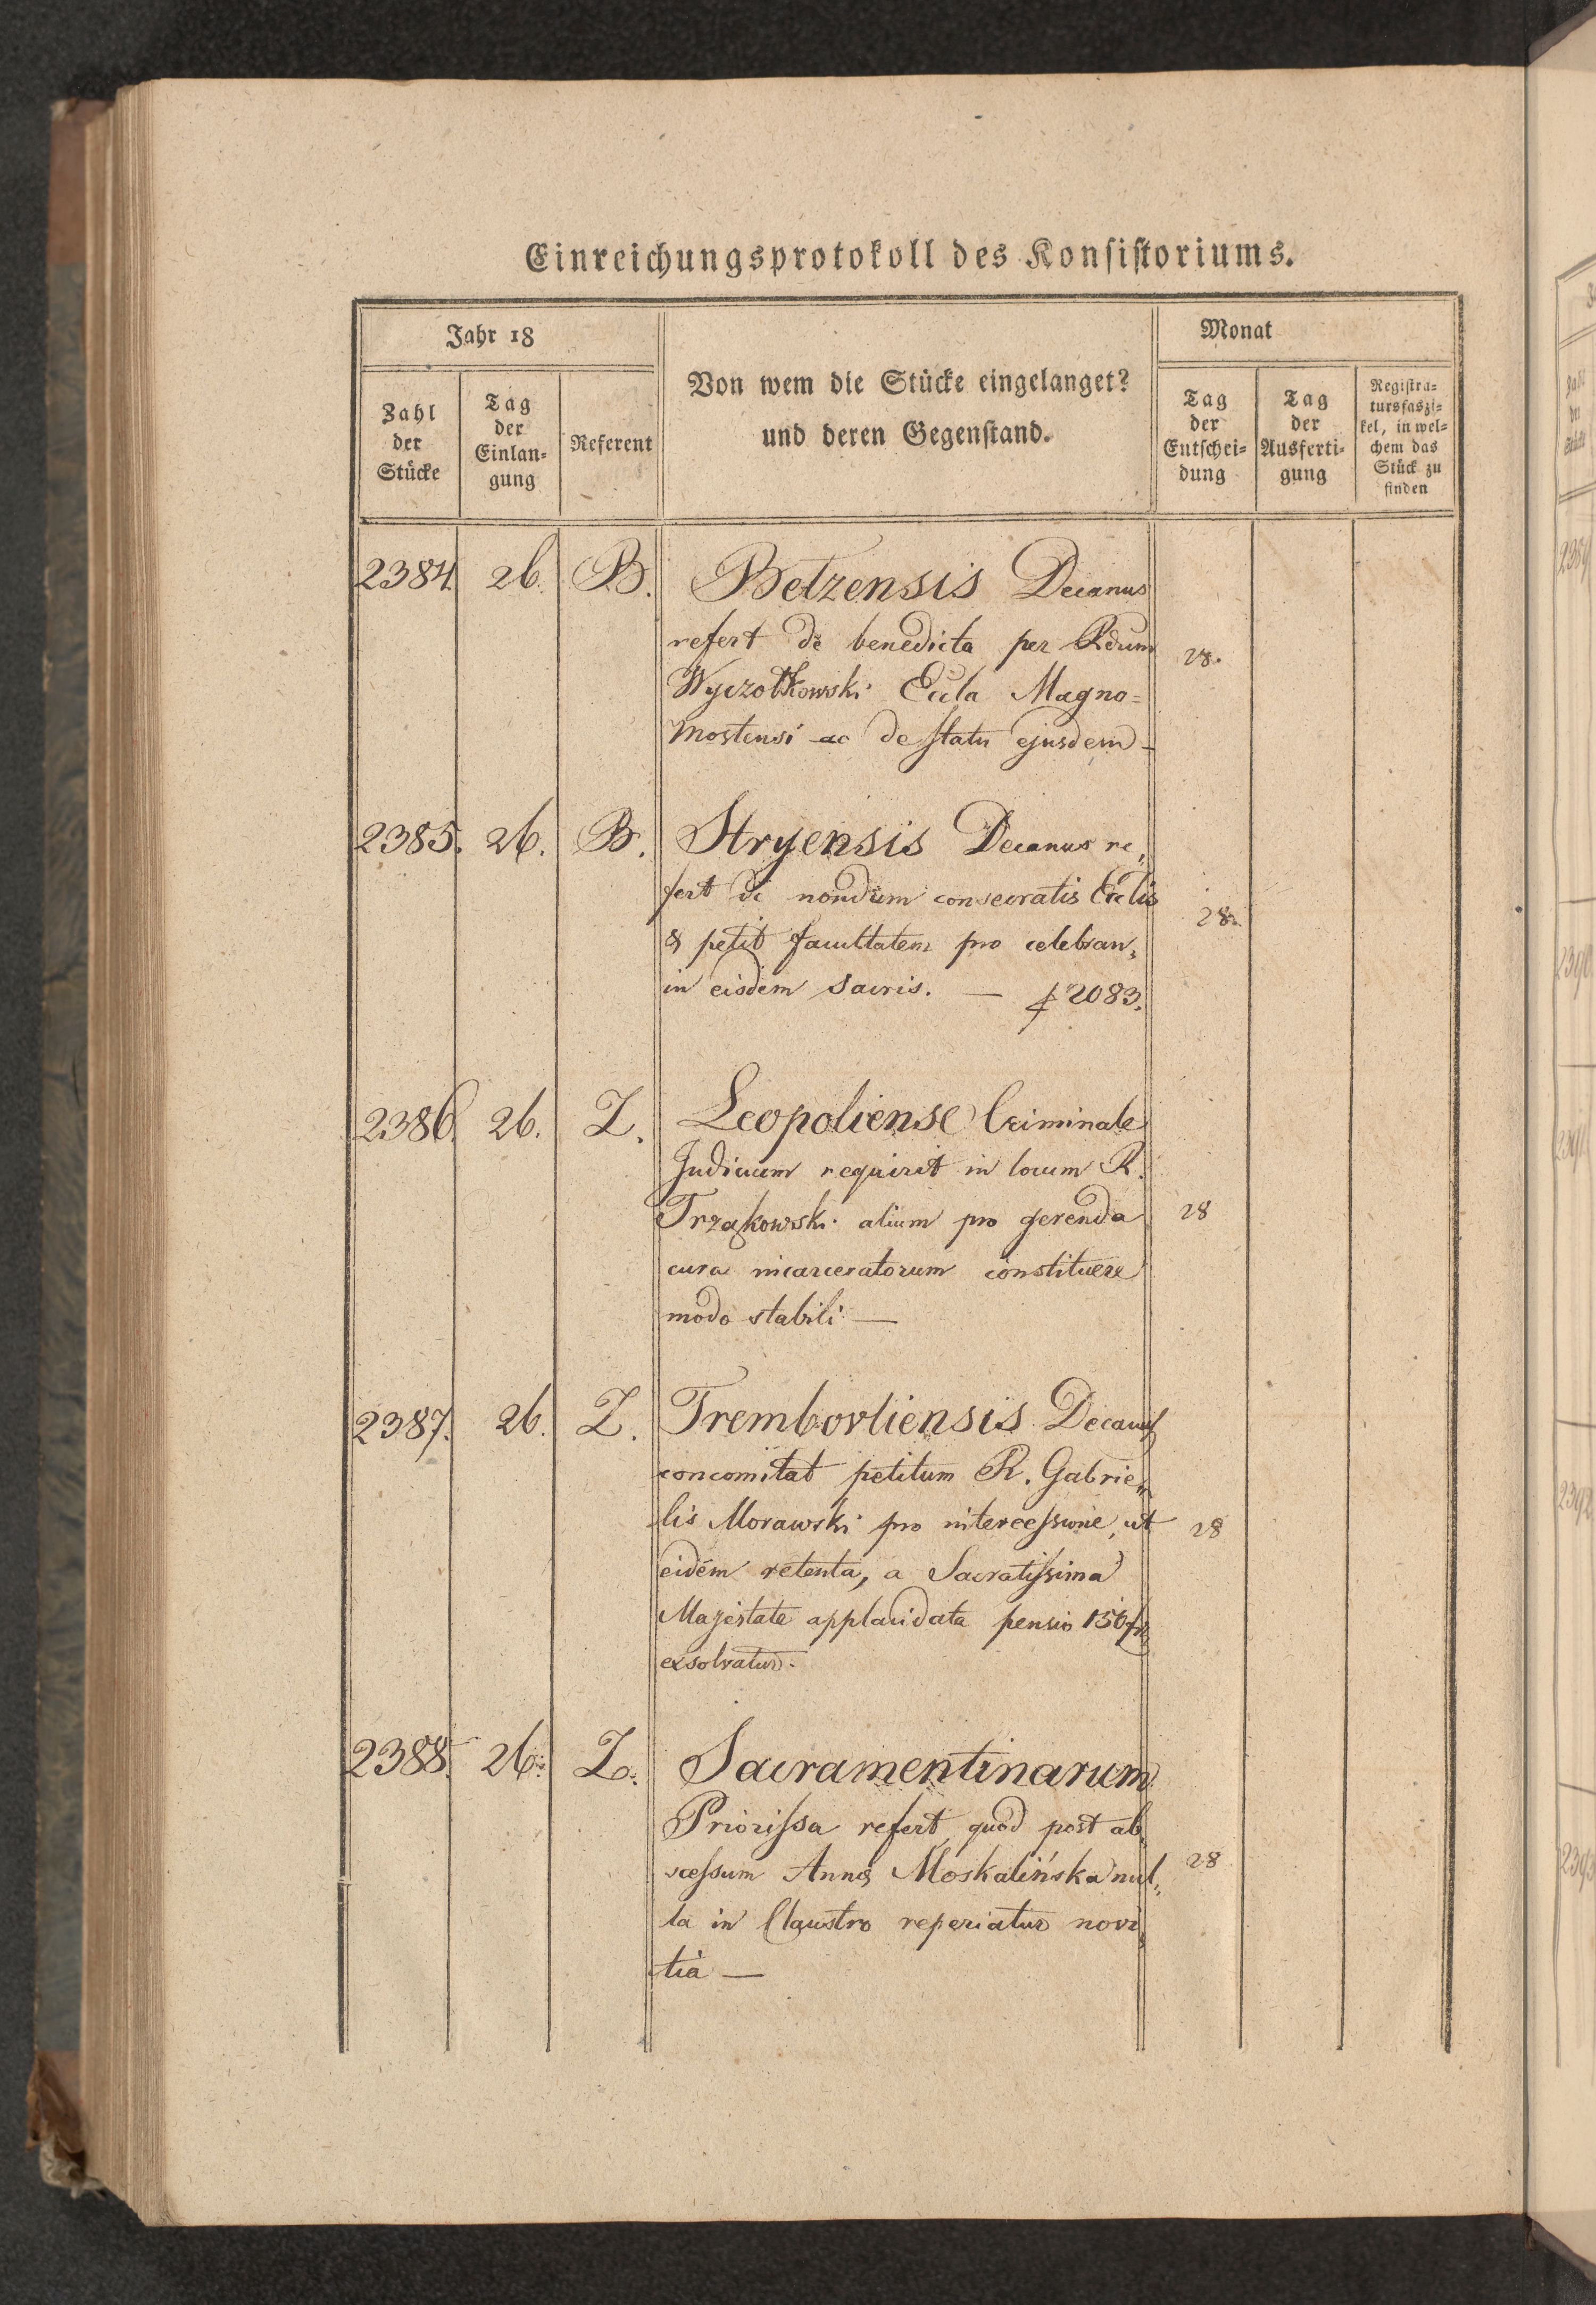 Einreichungsprotokoll des Konsistoriums.
Jahr 18
Monat
Zahl der Stücke
Tag der Einlan-gung
Referent
Von wem die Stücke eingelanget?
und deren Gegenstand.
Tag der Entschei-dung
Tag der Ausferti-gung
Registra-tursfaszi-kel, in wel-chem das Stück zu finden
2384. 26. B. Betzensis Decanus
refert de benedicta per Rdum 28.
Wyczołkowski Eccla Magno=
Mostensi ac de statu ejusdem -
2385. 26. B. Stryensis Decanus re„
fert de nondum consecratis Ecclis 28.
& petit facultatem pro celebran„
in eisdem Sacris. — 2083.
2386. 26. Z. Leopoliense Criminale
Judicium requirit in locum R.
Trzaskowski alium pro gerenda 28
cura incarceratorum constituere
modo stabili —
2387. 26. Z. Trembovliensis Decanus
concomitat petitum R. Gabrie„
lis Morawski pro intercessione, ut 28
eidem retenta, a Sacratissima
Majestate applacidata pensio 150 fr
exsolvatur.
2388. 26. Z. Sacramentinarum
Priorissa refert, quod post ab„
scessum Annæ Moskalińska nul„ 28
la in Claustro reperiatur novi„
tia —